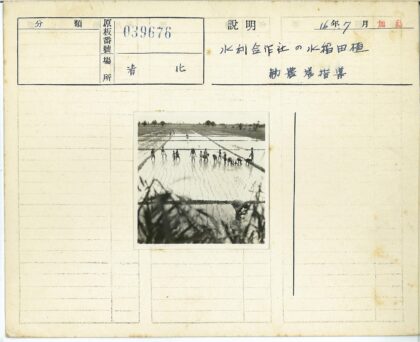 分類
原板番號
039676
場所
青北
説明
16年7月
水利合作社の水稲田植
勧農場指導